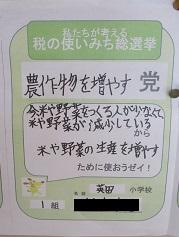 私たちが考える
税の使いみち総選挙
農作物を増やす 党
今米や野菜をつくる人が少なくて、
米や野菜が減少している
から
米や野菜の生産を増やす
ために使おうゼイ！
英田 小学校
1組